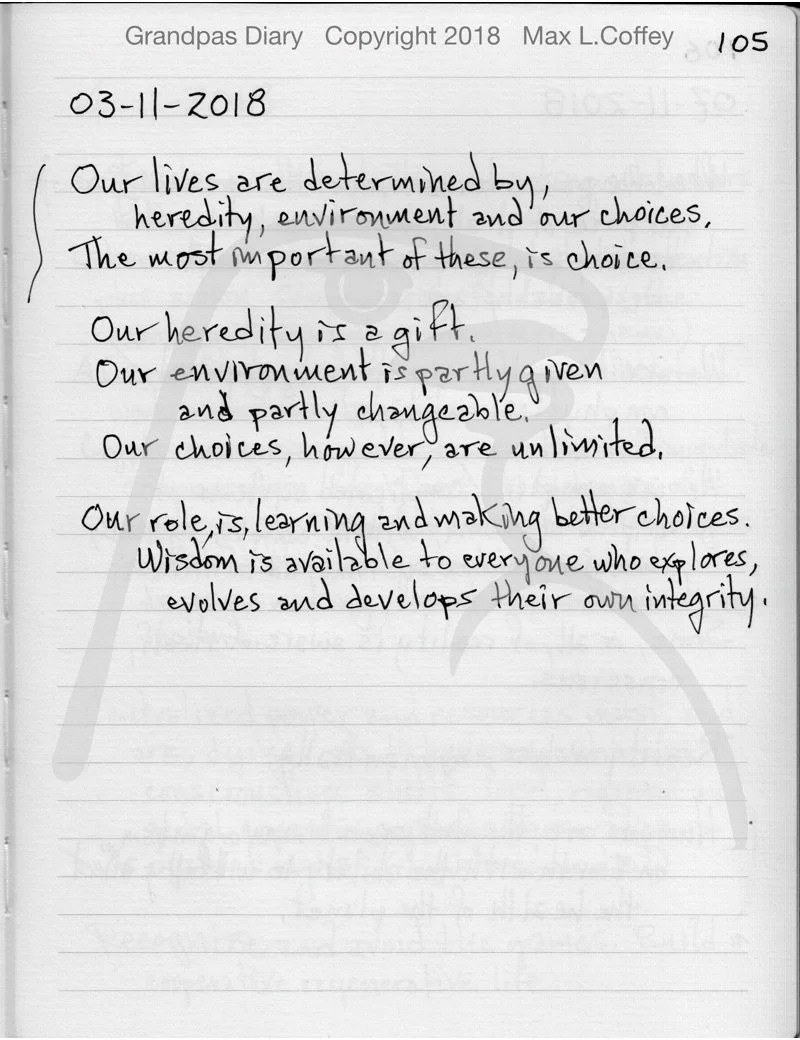 Grandpas Diary Copyright 2018 Max L.Coffey 105
03-11-2018
Our lives are determined by,
heredity, environment and our choices.
The most important of these, is choice.
Our heredity is a gift.
Our environment is partly given
and partly changeable.
Our choices, however, are unlimited.
Our role, is, learning and making better choices.
Wisdom is available to everyone who explores,
evolves and develops their own integrity.